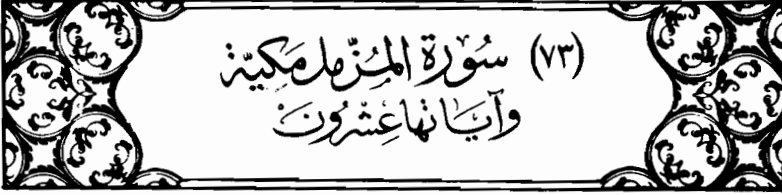 (٧٣) سُورَة المُزّمل مَكيّة
وآيَاتها عِشْرُونَ